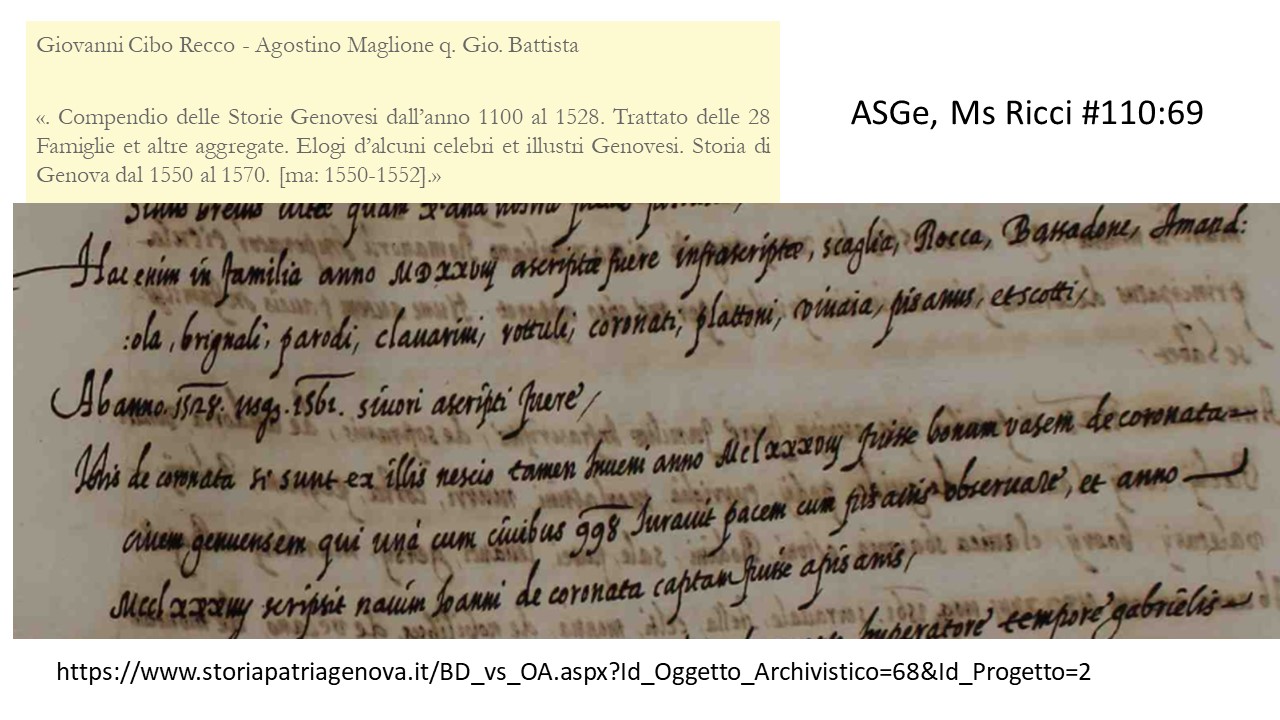 Giovanni Cibo Recco - Agostino Maglione q. Gio. Battista
«. Compendio delle Storie Genovesi dall’anno 1100 al 1528. Trattato delle 28
Famiglie et altre aggregate. Elogi d’alcuni celebri et illustri Genovesi. Storia di
Genova dal 1550 al 1570. [ma: 1550-1552].»
ASGe, Ms Ricci #110:69
quam
Hac enim in familia anno MDXXVIIJ ascriptæ fuere infrascriptæ, scaglia, Rocca, Bassadone, Amand:
:ola, brignali, parodi, clauarini, rottuli, coronati, plattoni, viuaia, pisanus, et scotti,
Ab anno. 1528. usq3. 1561. sinori ascripti fuere /
de coronata si sunt ex illis nescio tamen Inueni anno MclxxxViij fuisse bonam vasem de coronata
ciuem genuensem qui una cum ciuibus 998 Iurauit pacem cum pisanis obseruare, et anno
Mcclxxxiiij scripsit nauim Joanni de coronata captam fuisse apisanis,
Imperatore tempore gabrielis
https://www.storiapatriagenova.it/BD_vs_OA.aspx?Id_Oggetto_Archivistico=68&Id_Progetto=2